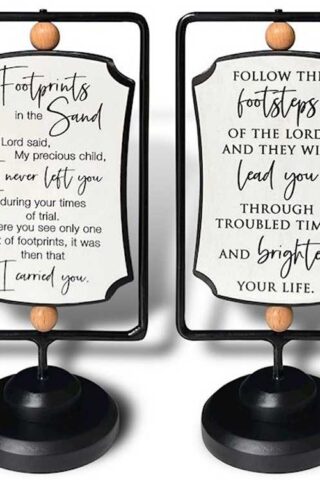 Footprints
in the
Sand
Lord said,
My precious child,
I never left you
during your times
of trial.
ere you see only one
t of footprints, it was
then that
I carried you.
FOLLOW THE
footsteps
OF THE LORD
AND THEY WI
lead you
THROUGH
TROUBLED TIM
AND brighte
YOUR LIFE.